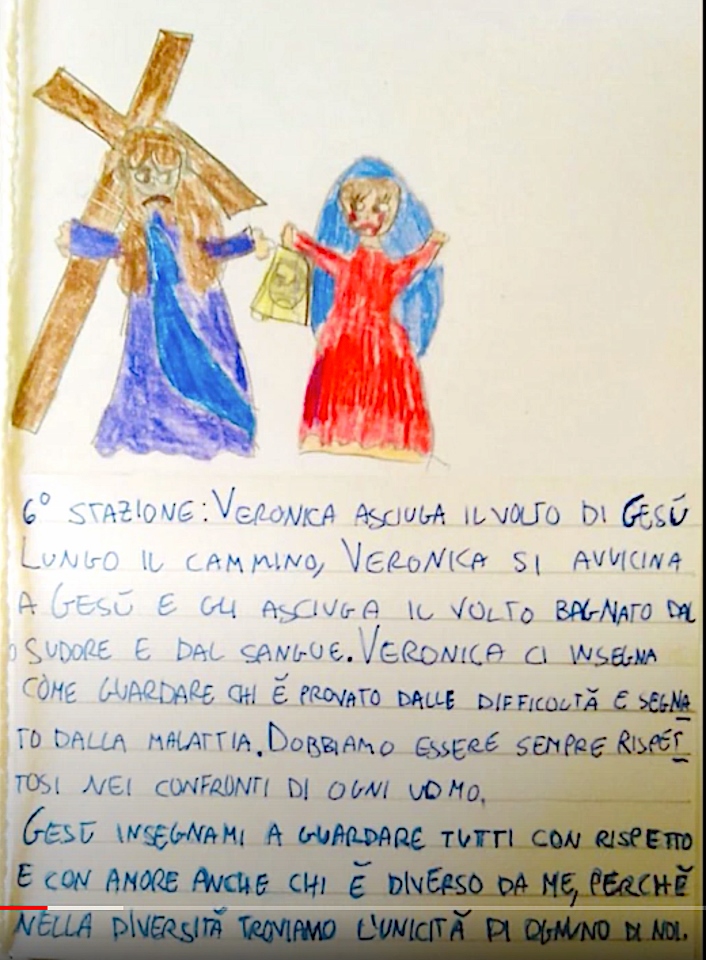 6° STAZIONE: VERONICA ASCIUGA IL VOLTO DI GESÙ
LUNGO IL CAMMINO, VERONICA SI AVVICINA
A GESÙ E GLI ASCIUGA IL VOLTO BAGNATO DAL
SUDORE E DAL SANGUE. VERONICA CI INSEGNA
COME GUARDARE CHI È PROVATO DALLE DIFFICOLTÀ E SEGNA
TO DALLA MALATTIA. DOBBIAMO ESSERE SEMPRE RISPET
TOSI NEI CONFRONTI DI OGNI UOMO.
GESÙ INSEGNAMI A GUARDARE TUTTI CON RISPETTO
E CON AMORE ANCHE CHI È DIVERSO DA ME, PERCHÈ
NELLA DIVERSITÀ TROVIAMO L'UNICITÀ DI OGNUNO DI NOI.